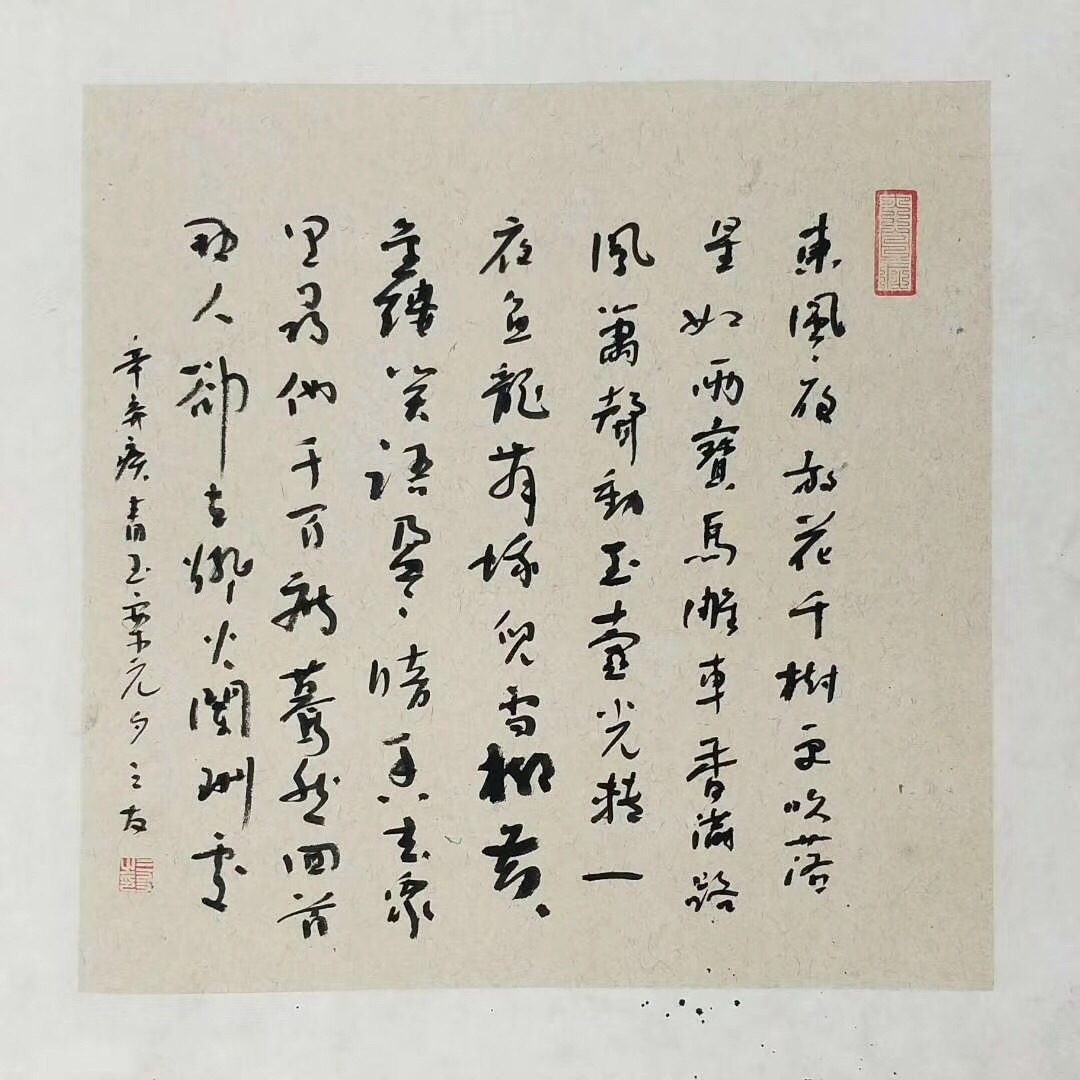 東風夜放花千樹更吹落
星如雨寶馬雕車香滿路
鳳簫聲動玉壺光轉一
夜魚龍舞蛾兒雪柳黃
金縷笑語盈〻暗香去衆
里尋他千百度驀然回首
那人卻在燈火闌珊處
辛弃疾青玉案元夕三友